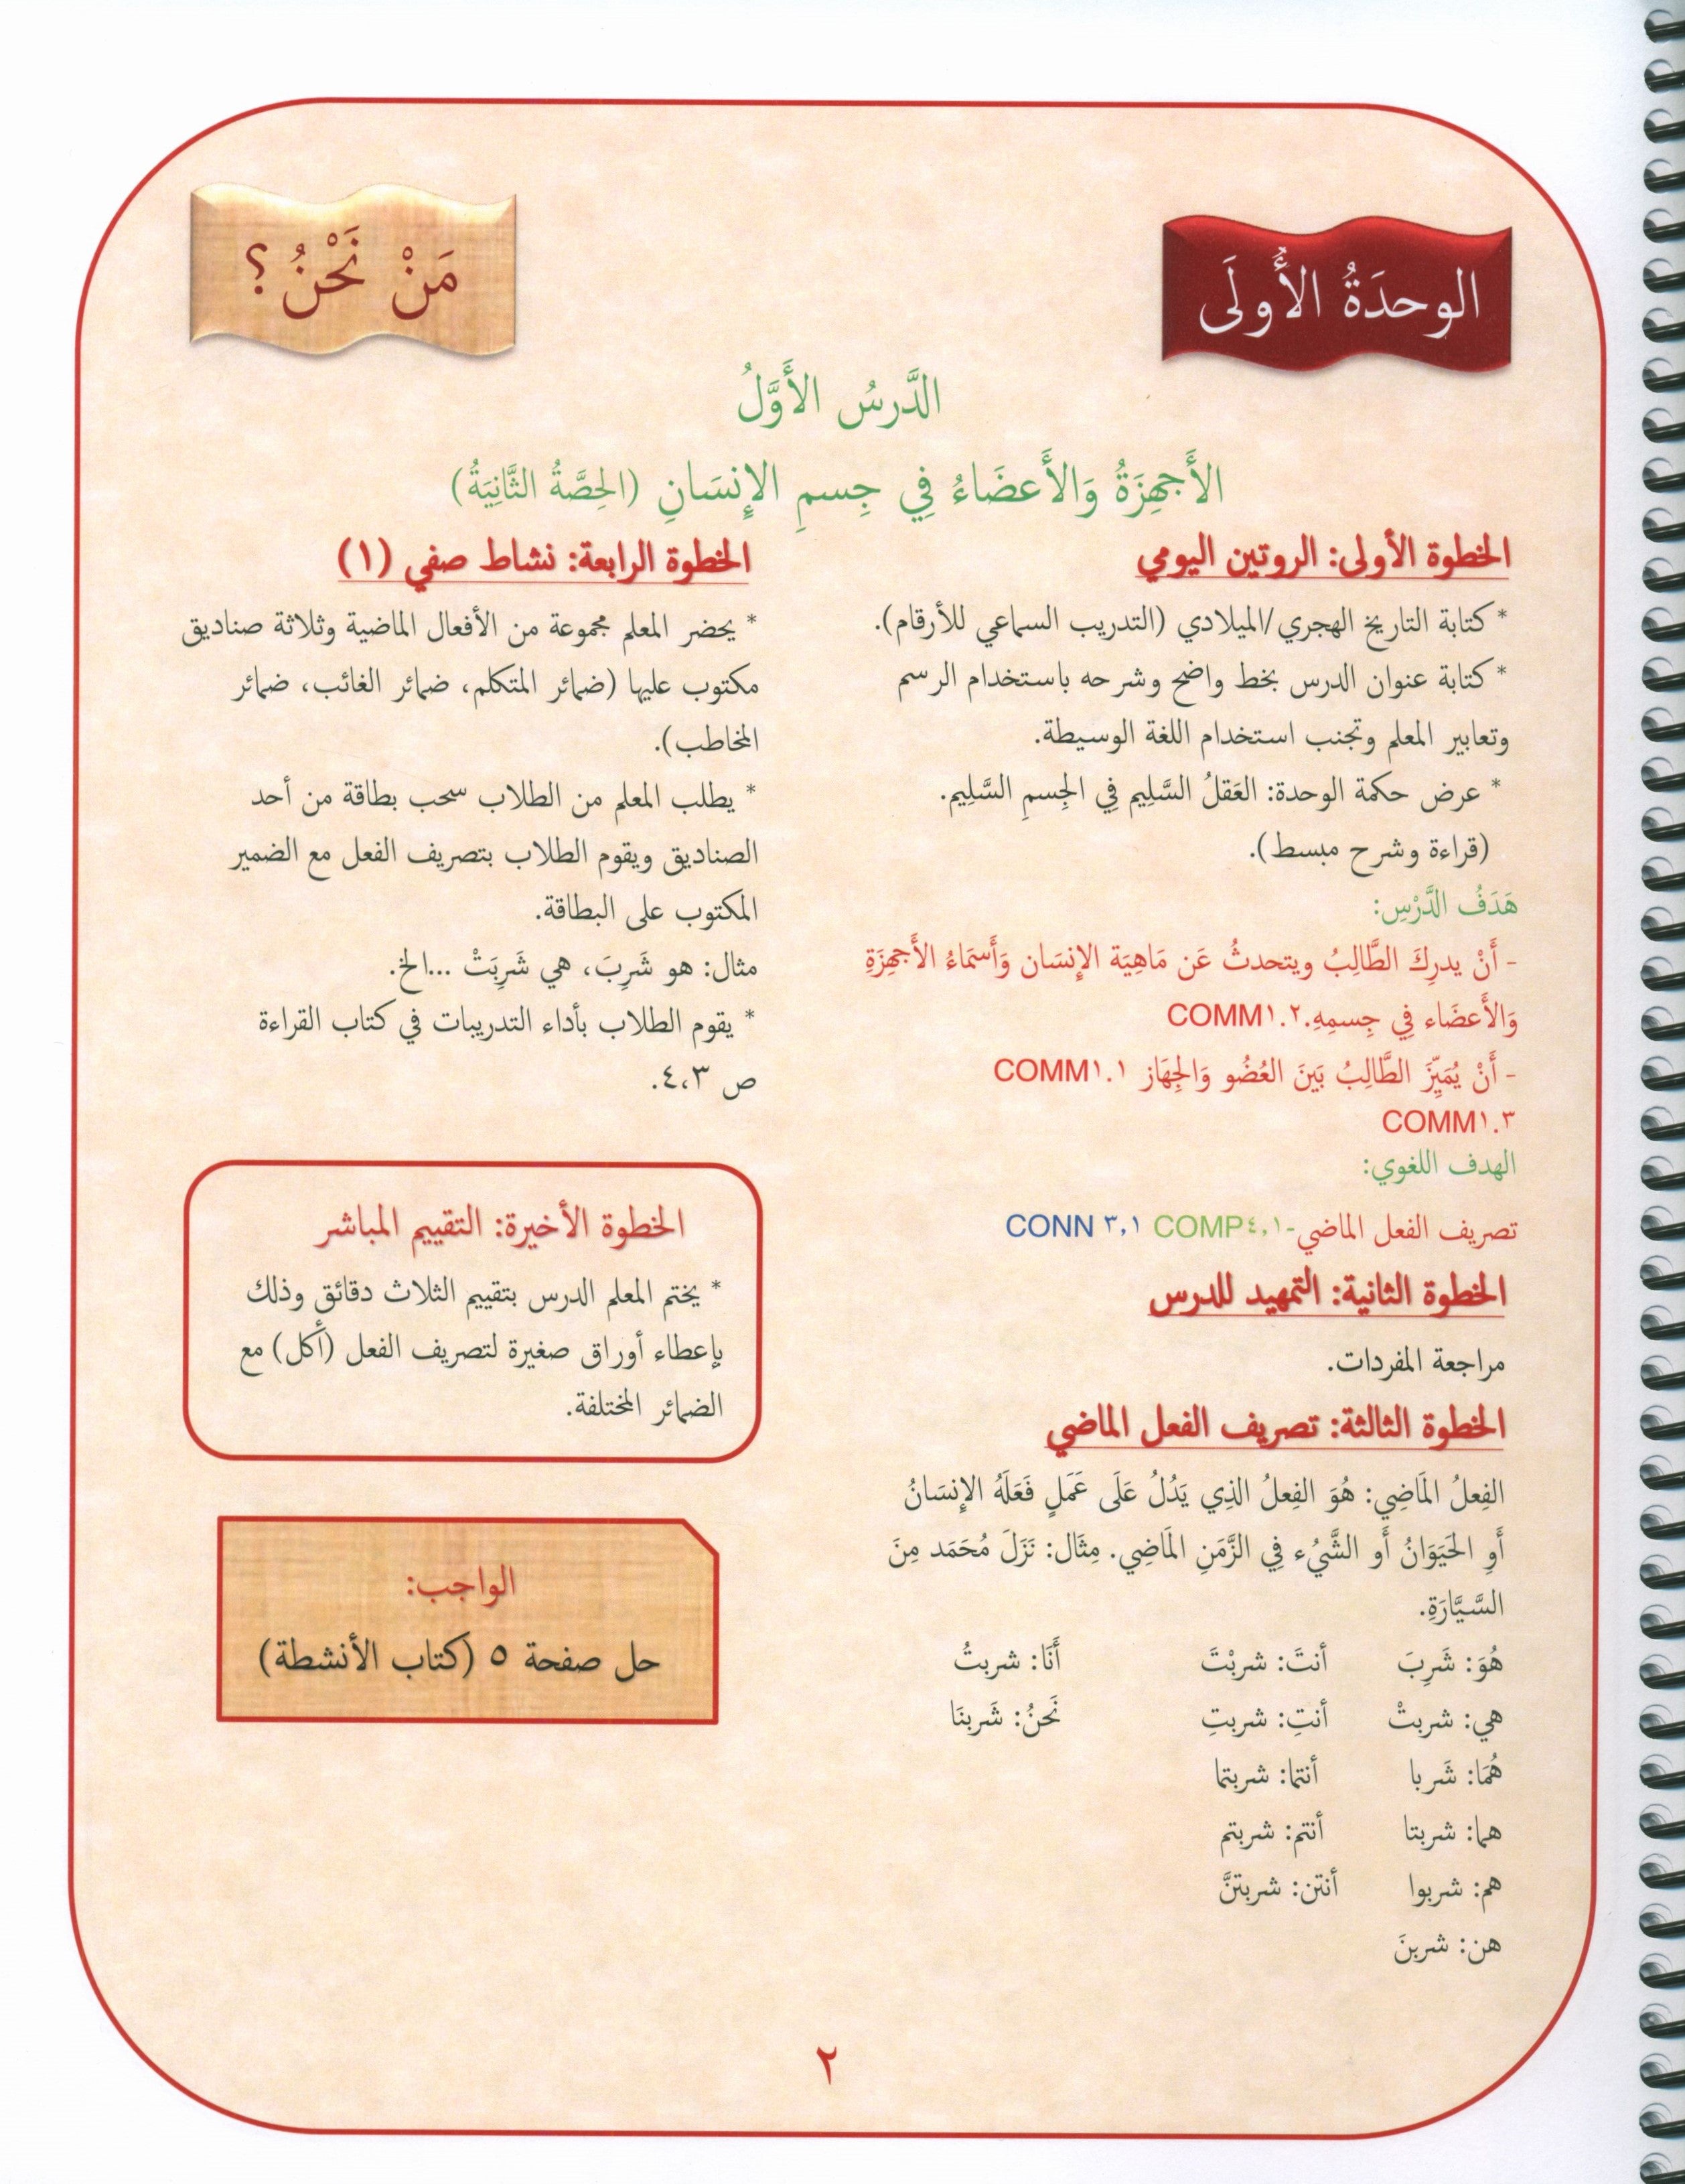 الوحدَةُ الأُولَى
مَنْ نَحْنُ؟
الدَّرسُ الأَوَّلُ
الأَجهِزَةُ وَالأَعضَاءُ فِي جِسمِ الإِنسَانِ (الحِصَّةُ الثَّانِيَةُ)
الخطوة الأولى: الروتين اليومي
* كتابة التاريخ الهجري/الميلادي (التدريب السماعي للأرقام).
* كتابة عنوان الدرس بخط واضح وشرحه باستخدام الرسم
وتعابير المعلم وتجنب استخدام اللغة الوسيطة.
* عرض حكمة الوحدة: العَقلُ السَّلِيم فِي الجِسمِ السَّلِيم.
(قراءة وشرح مبسط).
هَدَفُ الدَّرْسِ:
- أَنْ يدرِكَ الطَّالِبُ ويتحدثُ عَن مَاهِيَة الإِنسَان وَأَسمَاءُ الأَجهِزَةِ
وَالأَعضَاء فِي جِسمِهِ.COMM١.٢
- أَنْ يُمَيِّزَ الطَّالِبُ بَينَ العُضُو وَالجِهَاز COMM١.١
COMM١.٣
الهدف اللغوي:
تصريف الفعل الماضي-COMP٤,١ CONN ٣,١
الخطوة الثانية: التمهيد للدرس
مراجعة المفردات.
الخطوة الثالثة: تصريف الفعل الماضي
الفِعلُ المَاضِي: هُوَ الفِعلُ الذِي يَدُلُ عَلَى عَمَلٍ فَعَلَهُ الإِنسَانُ
أَوِ الحَيَوَانُ أَو الشَّيْء فِي الزَّمَنِ المَاضِي. مِثَال: نَزَلَ مُحَمَد مِنَ
السَّيَّارَةِ.
هُوَ: شَرِبَ أنتَ: شربْتَ أَنَا: شربتُ
هي: شربتْ أنتِ: شربتِ نَحنُ: شَربنَا
هُمَا: شَربا أنتما: شربتما
هما: شربتا أنتم: شربتم
هم: شربوا أنتن: شربتنَّ
هن: شربنَ
الخطوة الرابعة: نشاط صفي (١)
* يحضر المعلم مجموعة من الأفعال الماضية وثلاثة صناديق
مكتوب عليها (ضمائر المتكلم، ضمائر الغائب، ضمائر
المخاطب).
* يطلب المعلم من الطلاب سحب بطاقة من أحد
الصناديق ويقوم الطلاب بتصريف الفعل مع الضمير
المكتوب على البطاقة.
مثال: هو شَرِبَ، هي شَرِبَتْ ...الخ.
* يقوم الطلاب بأداء التدريبات في كتاب القراءة
ص ٤،٣.
الخطوة الأخيرة: التقييم المباشر
* يختم المعلم الدرس بتقييم الثلاث دقائق وذلك
بإعطاء أوراق صغيرة لتصريف الفعل (أكل) مع
الضمائر المختلفة.
الواجب:
حل صفحة ٥ (كتاب الأنشطة)
٢